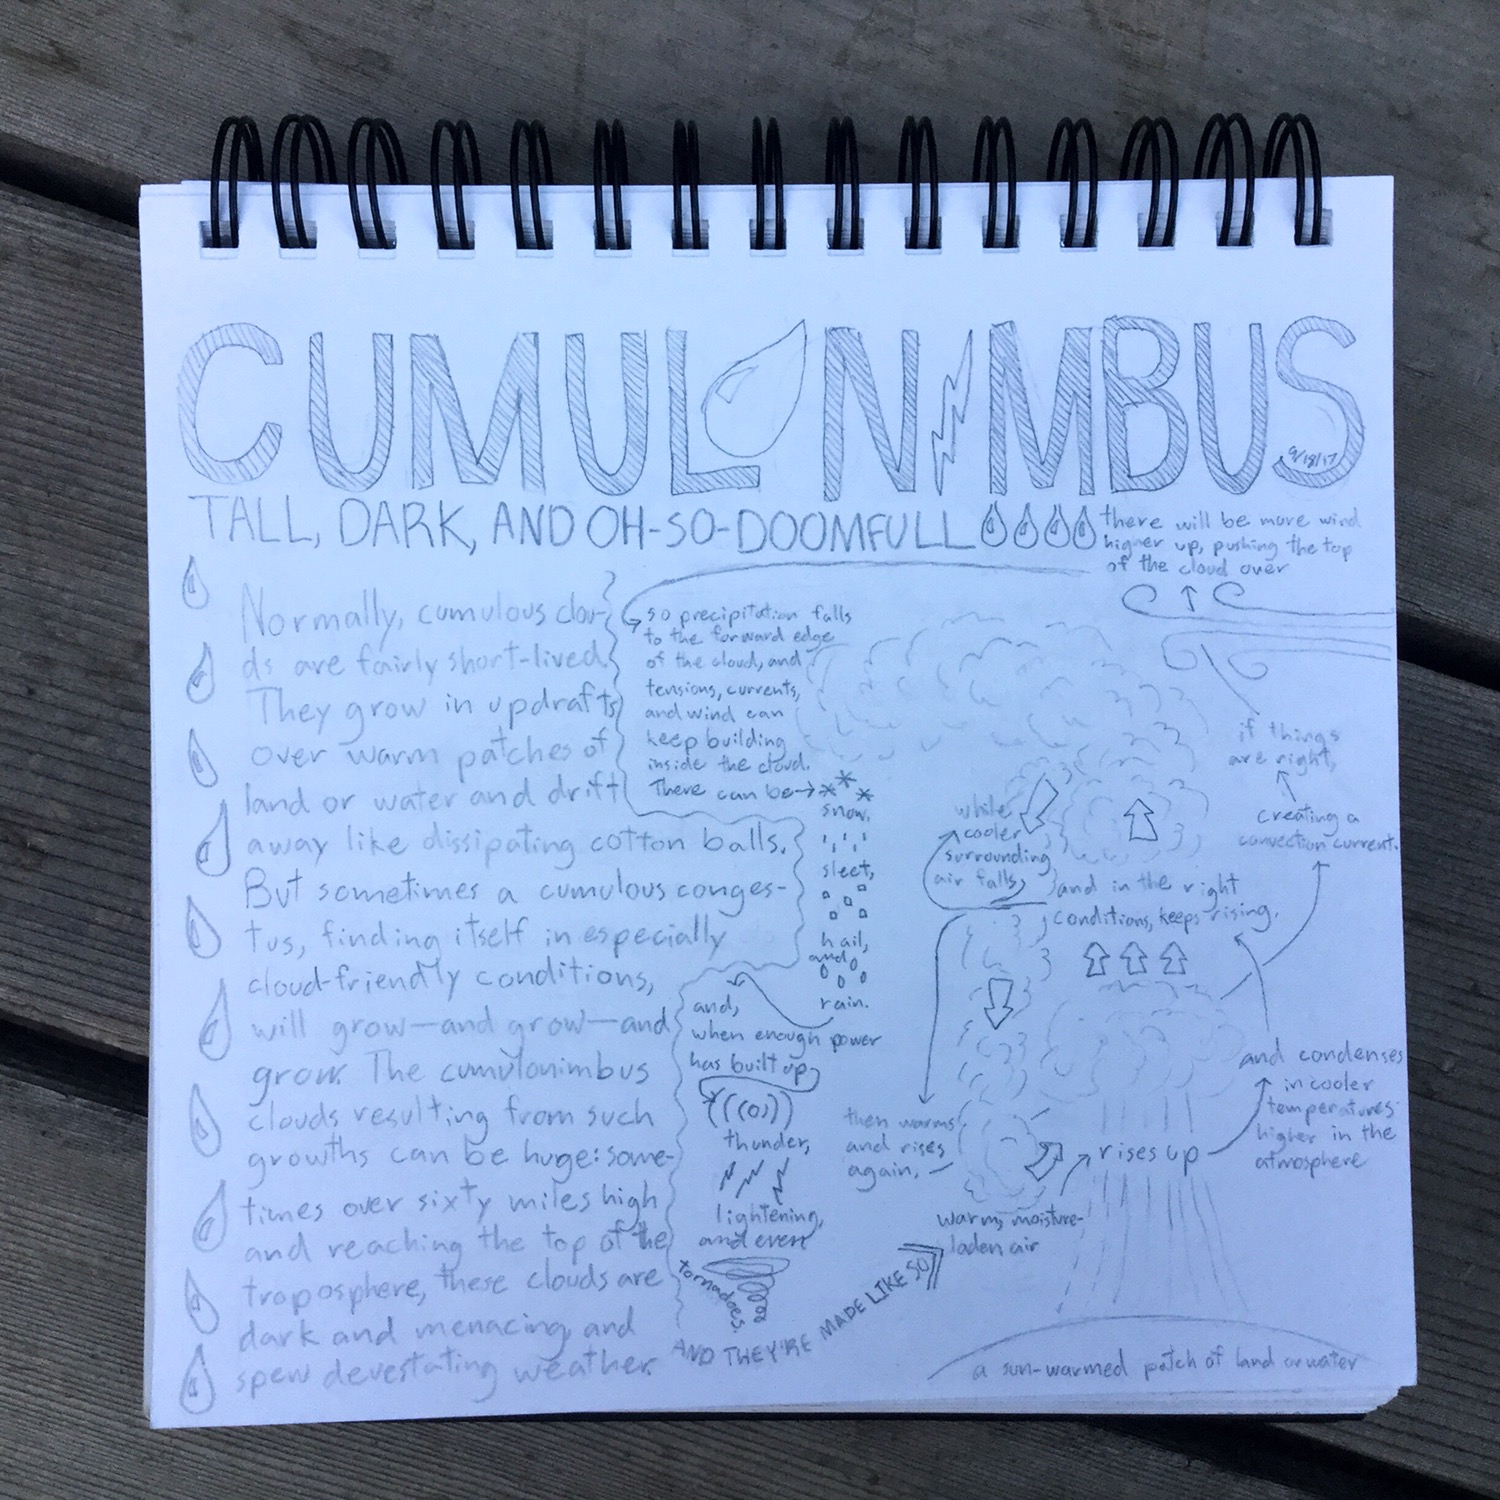 CUMULONIMBUS
9/18/17
TALL, DARK, AND OH-SO-DOOMFULL
Normally, cumulous clou-
ds are fairly short-lived.
They grow in updrafts
over warm patches of
land or water and drift
away like dissipating cotton balls.
But sometimes a cumulous conges-
tus, finding itself in especially
cloud-friendly conditions,
will grow—and grow—and
grow. The cumulonimbus
clouds resulting from such
growths can be huge: some-
times over sixty miles high
and reaching the top of the
troposphere, these clouds are
dark and menacing, and
spew devestating weather.
AND THEY'RE MADE LIKE SO
a sun-warmed patch of land or water
warm, moisture-
laden air
rises up
and condenses
in cooler
temperatures
higher in the
atmosphere
and in the right
conditions, keeps rising,
while
cooler
surrounding
air falls,
then warms
and rises
again,
creating a
convection current.
if things
are right,
there will be more wind
higher up, pushing the top
of the cloud over
so precipitation falls
to the forward edge
of the cloud, and
tensions, currents,
and wind can
keep building
inside the cloud.
There can be
snow,
sleet,
hail,
and
rain.
and,
when enough power
has built up,
thunder,
lightening,
and even
tornadoes.